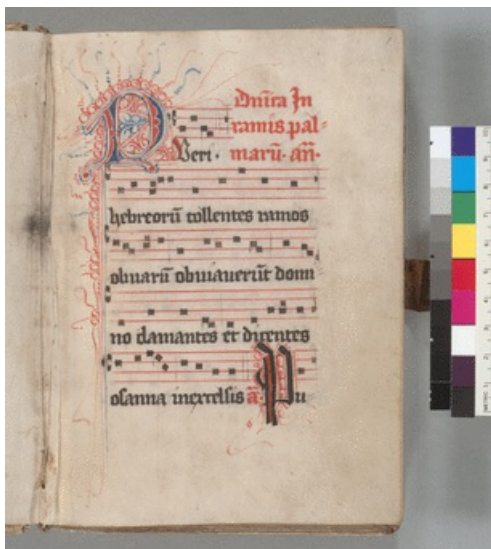 Dn̄ica In
ramis pal=
Pueri · marū · an̄ ·
hebreorū tollentes ramos
oliuarū obuiauerūt domi
no clamantes et dicentes
osanna inexcelsis ā Pu